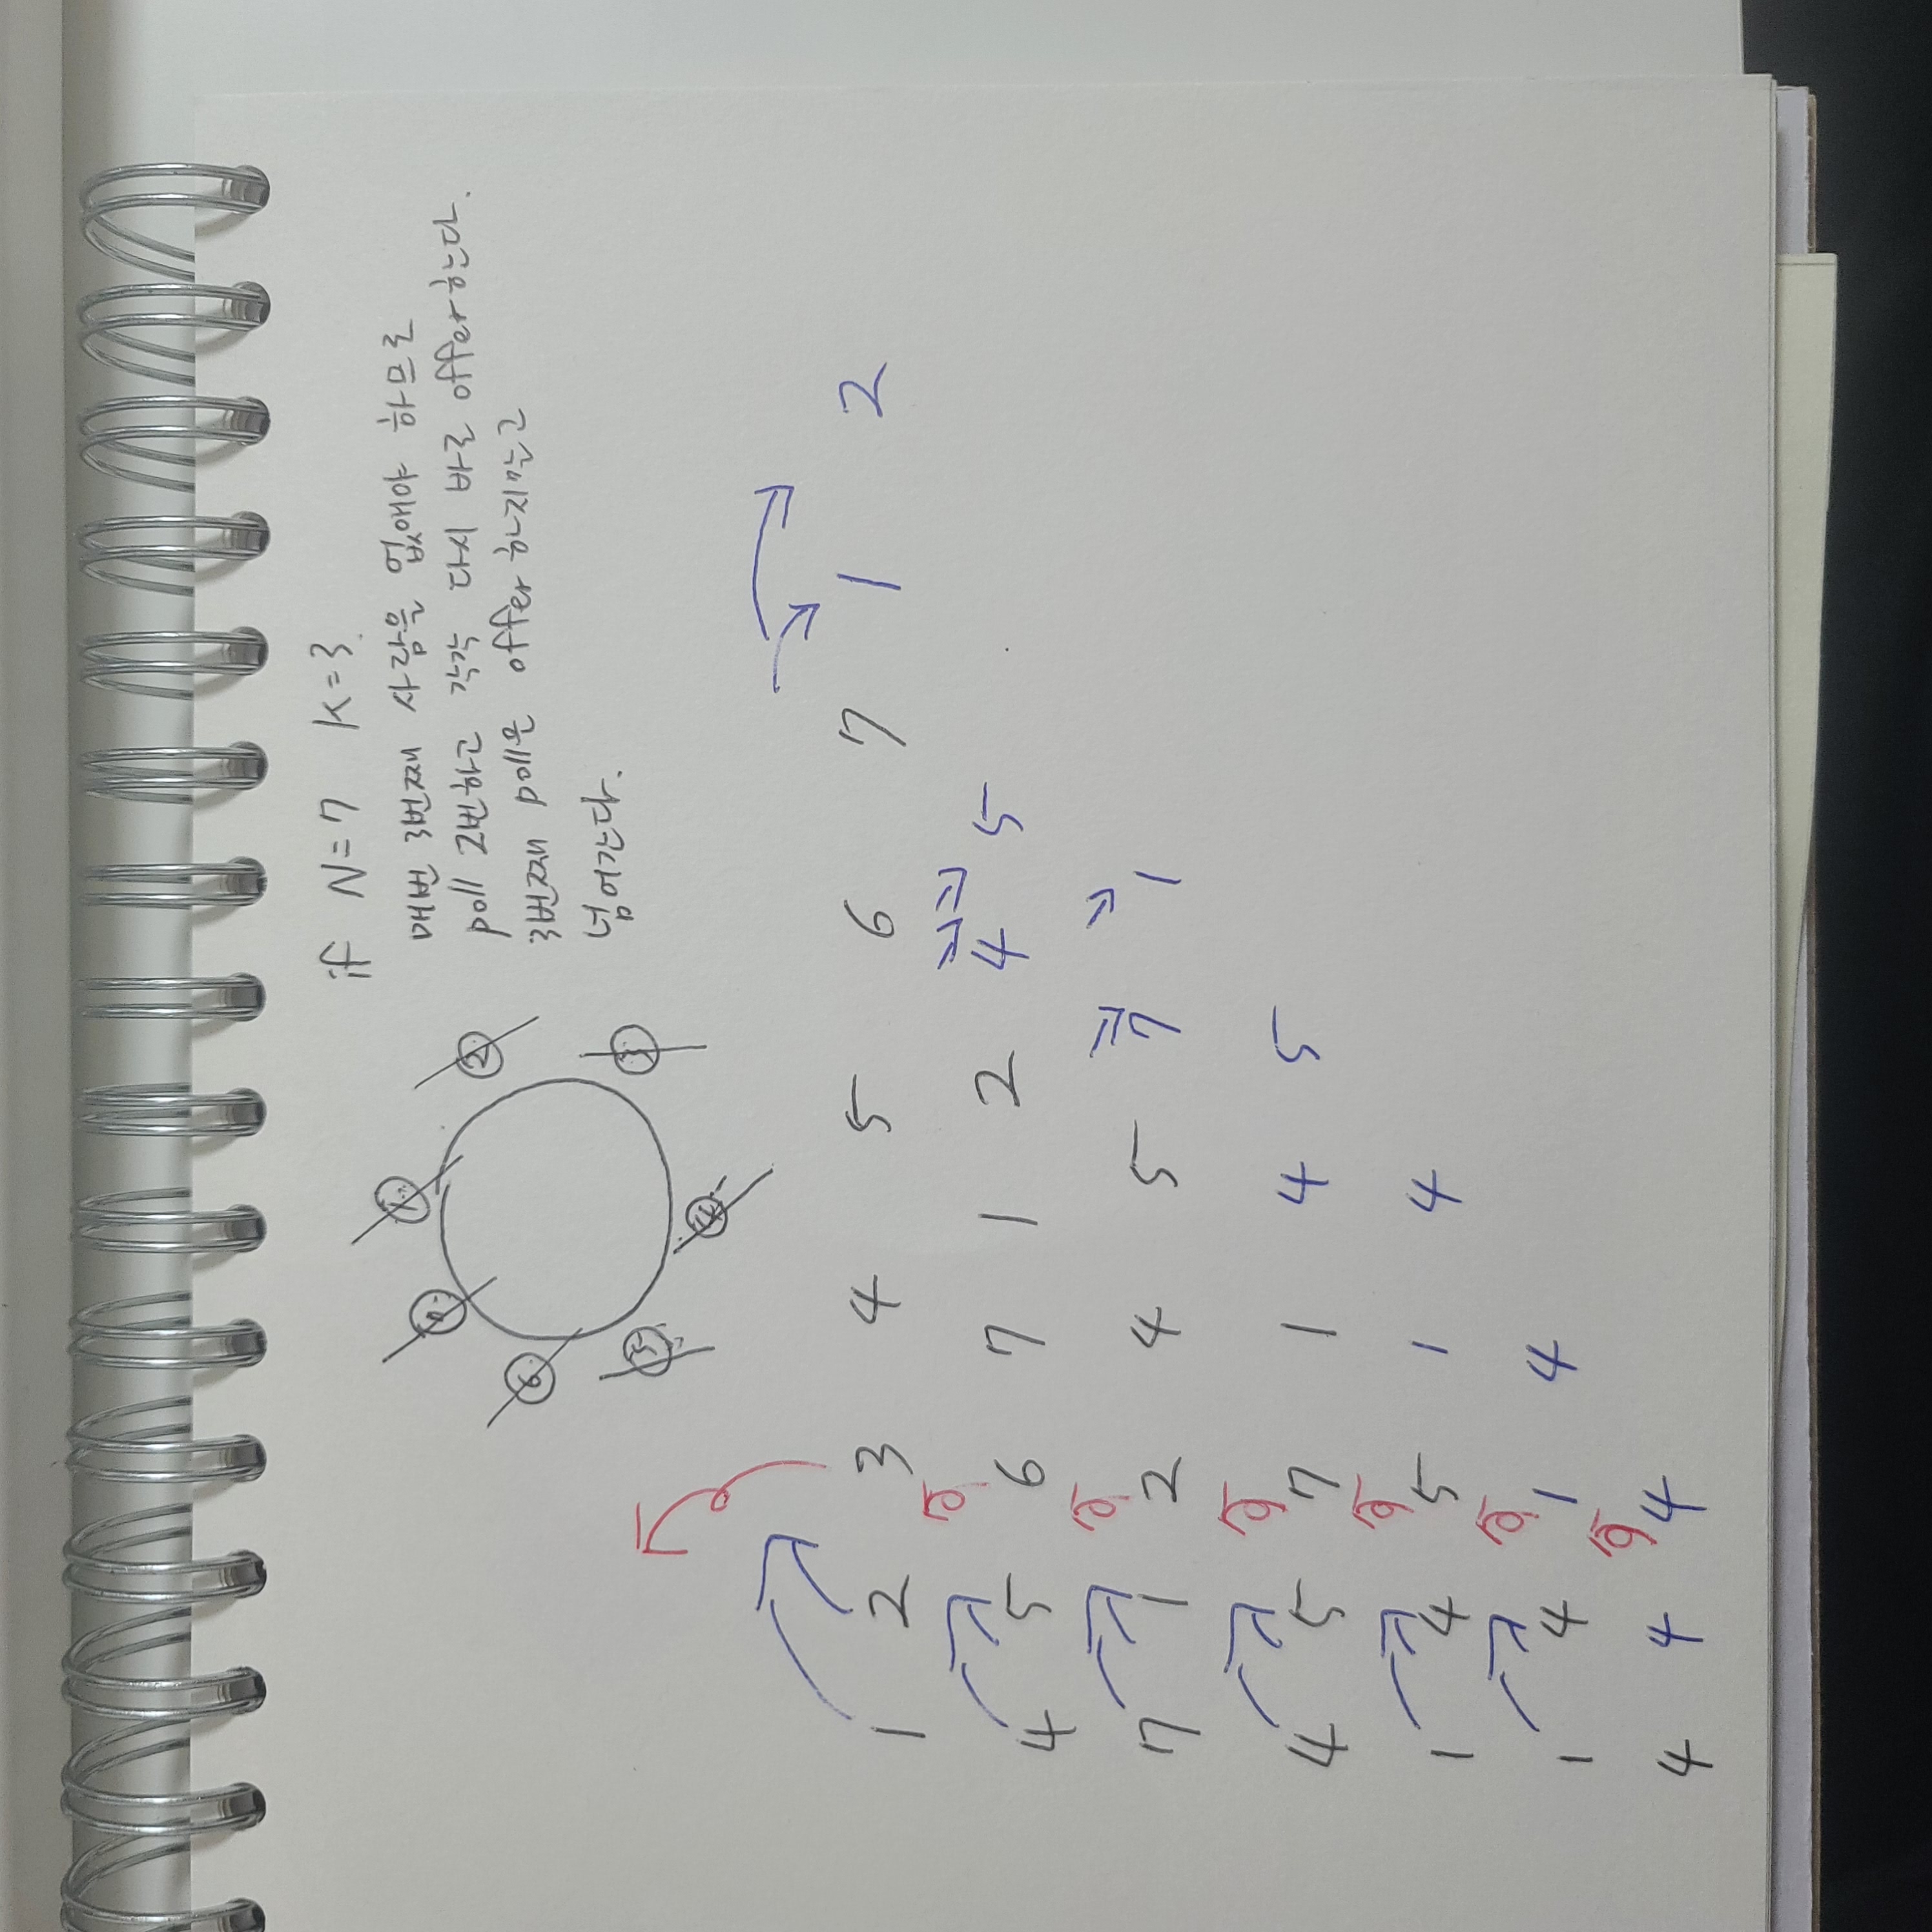 if N=7 K=3.
매번 3번째 사람을 없애야 하므로
poll 2번하고 각각 다시 바로 offer한다.
3번째 poll은 offer 하지말고
넘어간다.
1
2
3
4
5
6
7
1 2 3 4 5 6 7 1 2
4 5 6 7 1 2 4 5
7 1 2 4 5 7 1
4 5 7 1 4 5
1 4 5 1 4
1 4 1 4
4 4 4